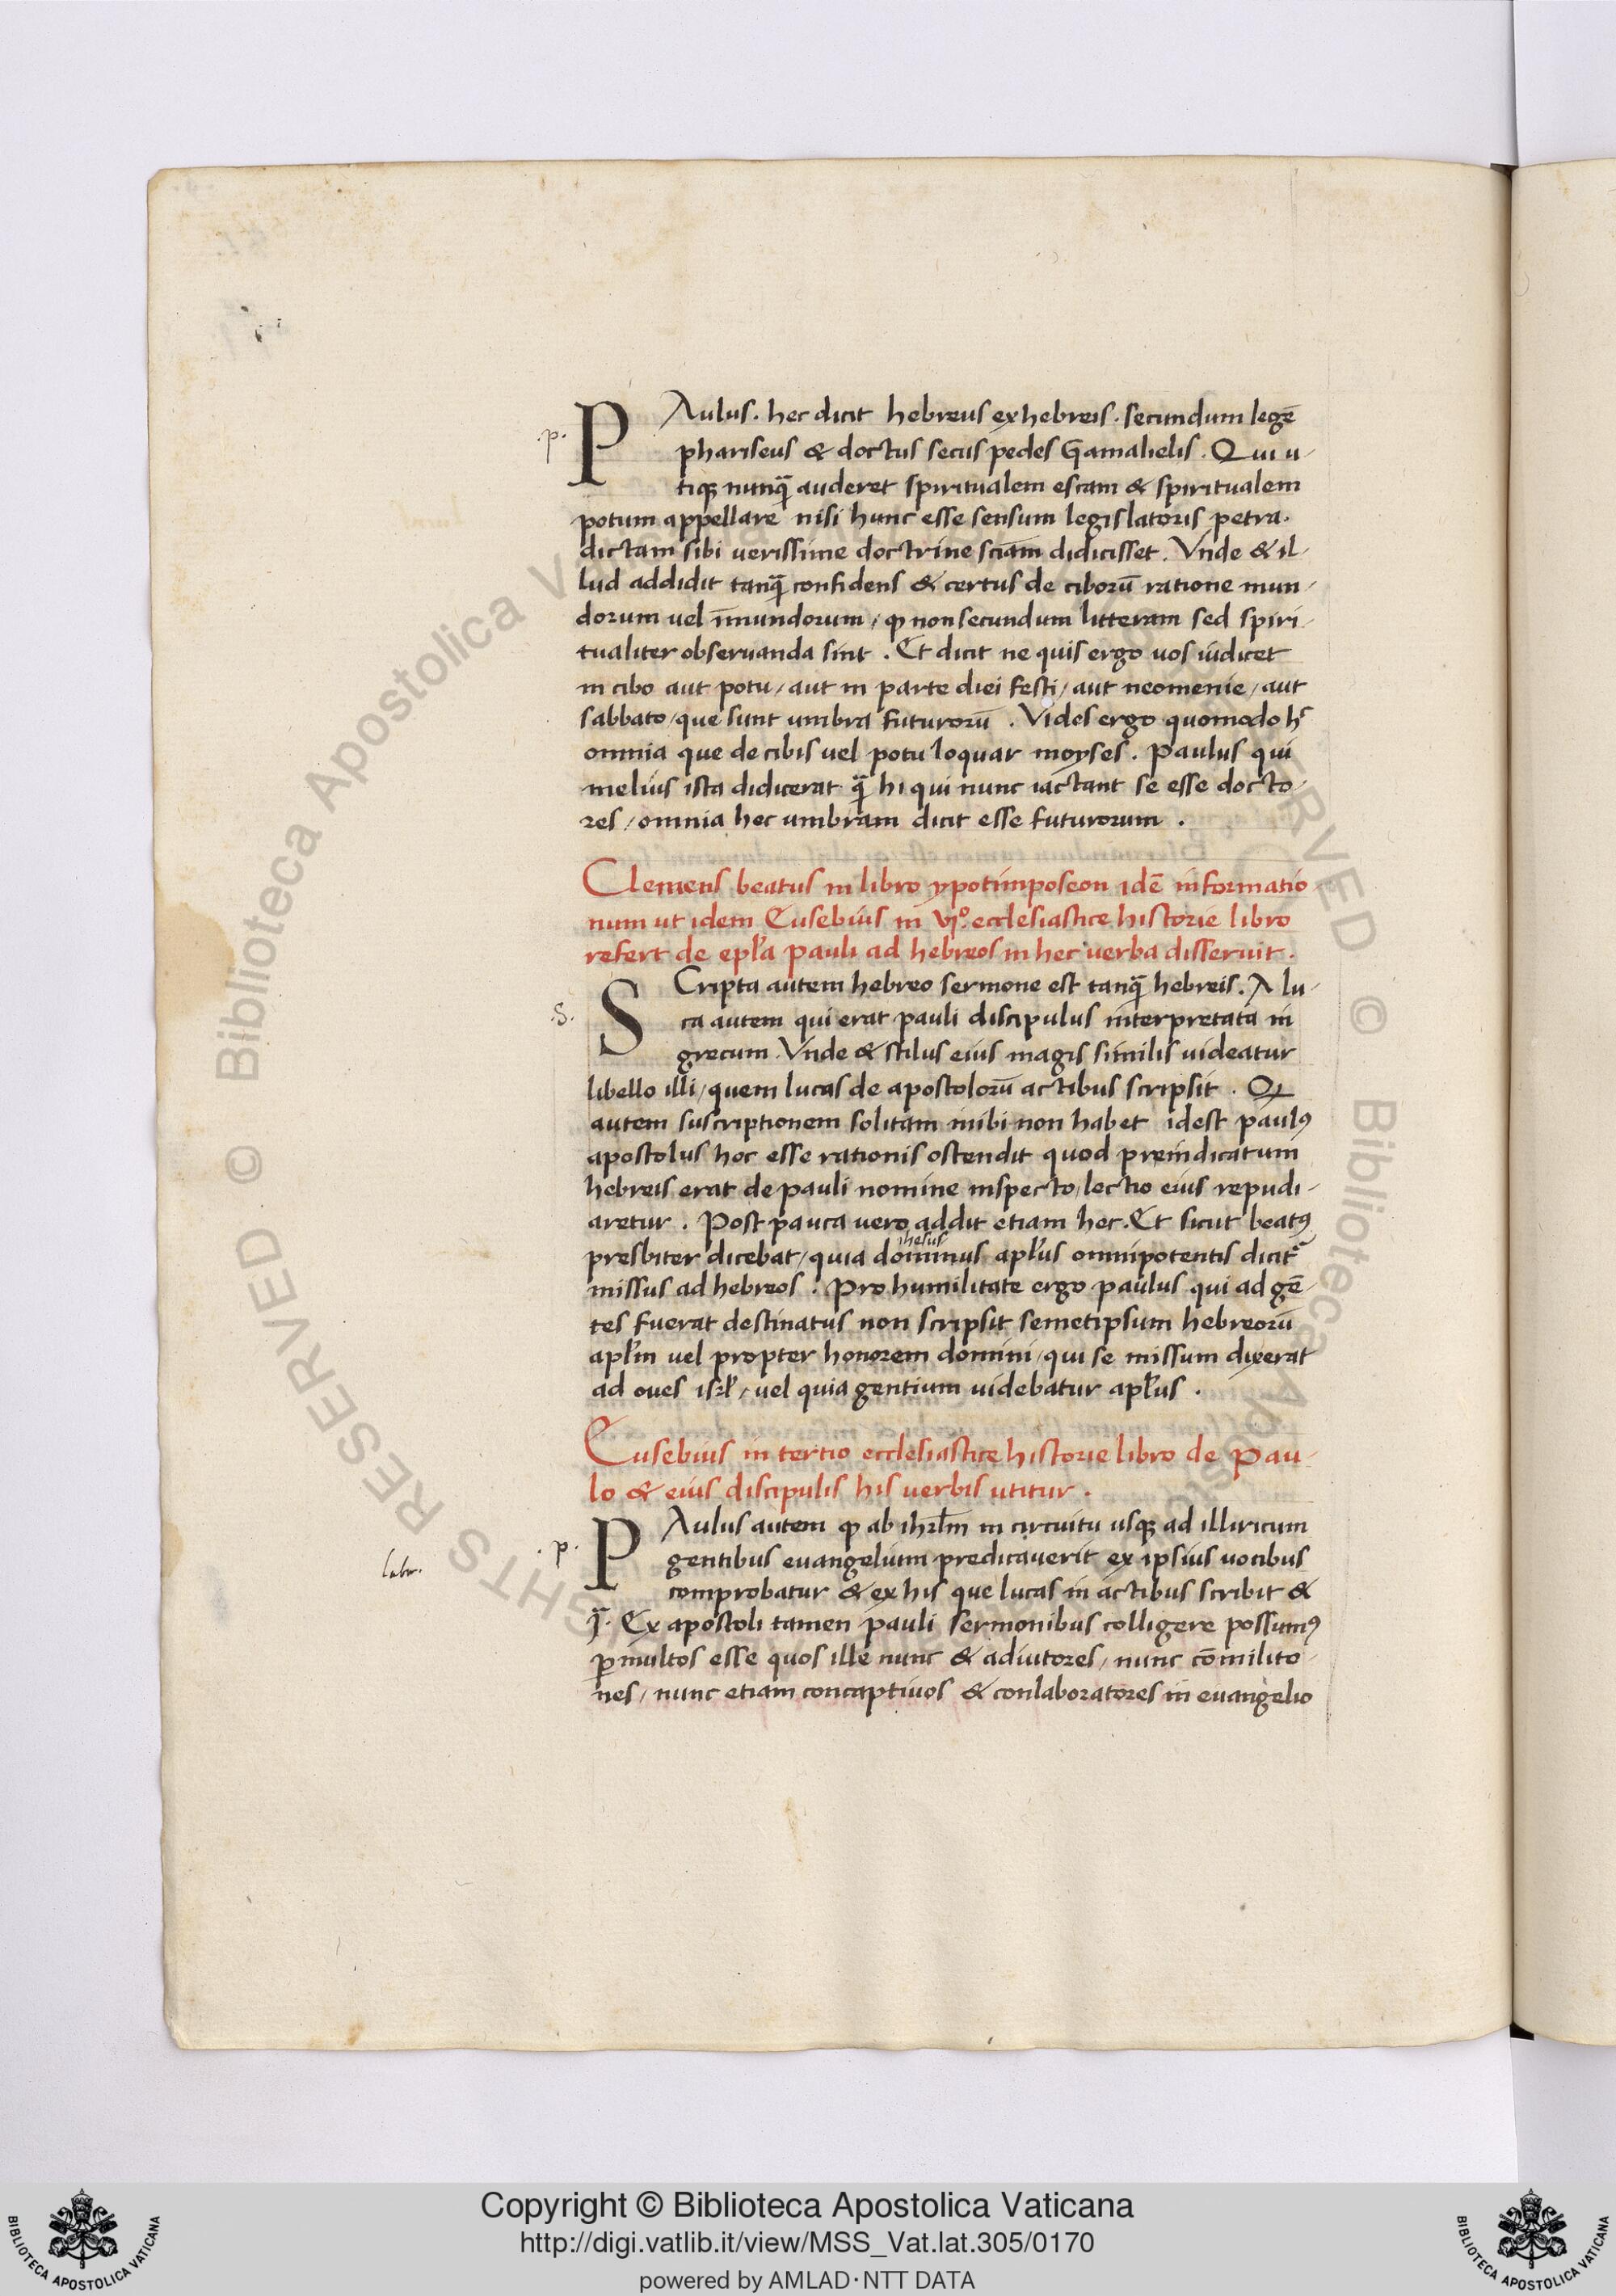 PAulus. hec dicit hebreus ex hebreis. secundum legē
.p.
phariseus & doctus secus pedes Gamalielis. Qui u-
tiqꝫ nunqᷓ auderet spiritualem escam & spiritualem
potum appellare nisi hunc esse sensum legislatoris petra.
dictam sibi uerissime doctrine sciam̄ didicisset. Vnde & il-
lud addidit tanqᷓ confidens & certus de ciborū ratione mun-
dorum uel īmundorum / ꝙ non secundum litteram sed spiri-
tualiter obseruanda sint. Et dicit ne quis ergo uos iudicet
in cibo aut potu / aut in parte diei festi / aut neomenie / aut
sabbato / que sunt umbra futurorū. Vides ergo quomodo h^s
omnia que de cibis uel potu loquar moyses. Paulus qui
melius ista didicerat qᷓ hi qui nunc iactant se esse docto-
res / omnia hec umbram dicit esse futurorum.
Clemens beatus in libro ypotimposeon idē informatio-
num ut idem Eusebius in VIº. ecclesiastice historie libro
refert de epl̄a pauli ad hebreos in hec uerba disseruit.
SCripta autem hebreo sermone est tanqᷓ hebreis. A lu-
.S.
ca autem qui erat pauli discipulus interpretata in
grecum. Vnde & stilus eius magis similis uideatur
libello illi / quem lucas de apostolorū actibus scripsit. Ꝙ
autem suscriptionem solitam inibi non habet idest paulꝰ
apostolus hoc esse rationis ostendit quod preiudicatum
hebreis erat de pauli nomine inspecto / lectio eius repudi-
aretur. Post pauca uero addit etiam hec. Et sicut beatꝰ
ihesus
presbiter dicebat / quia dominus apl̄us omnipotentis dicit᷑
missus ad hebreos. Pro humilitate ergo paulus qui ad gē-
tes fuerat destinatus non scripsit semetipsum hebreorū
apl̄m uel propter honorem domini / qui se missum dixerat
ad oues isrl̄ / uel quia gentium uidebatur apl̄us.
Eusebius in tertio ecclesiastice historie libro de Pau-
lo & eius discipulis his uerbis utitur.
PAulus autem ꝙ ab ihrl̄m in circuitu usqꝫ ad illiricum
.p.
gentibus euangelium predicauerit ex ipsius uocibus
labor.
comprobatur & ex his que lucas in actibus scribit &
qᷓ. Ex apostoli tamen pauli sermonibus colligere possumꝰ
ꝑmultos esse quos ille nunc & adiutores / nunc cōmilito-
nes / nunc etiam concaptiuos & conlaboratores in euangelio
© Biblioteca Apostolica Vaticana
RIGHTS RESERVED
Copyright © Biblioteca Apostolica Vaticana
http://digi.vatlib.it/view/MSS_Vat.lat.305/0170
powered by AMLAD·NTT DATA
BIBLIOTECA APOSTOLICA VATICANA
BIBLIOTECA APOSTOLICA VATICANA